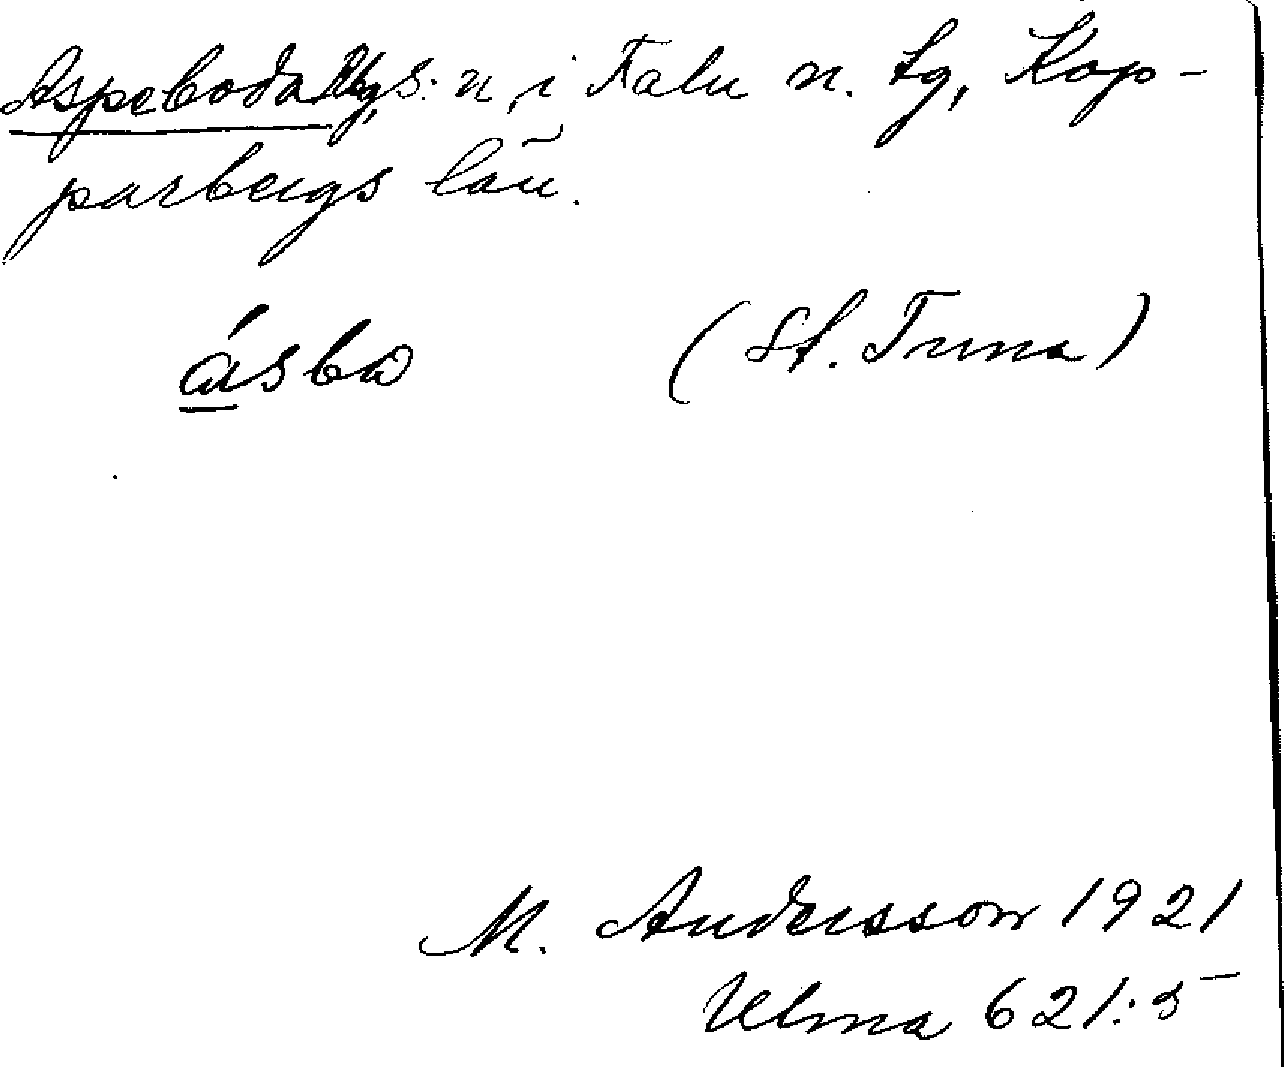 Aspeboda s:n, i Falu n. tg, Kop-
parbergs län.
ásbo (St. Tuna)
M. Andersson 1921
Ulma 621:5